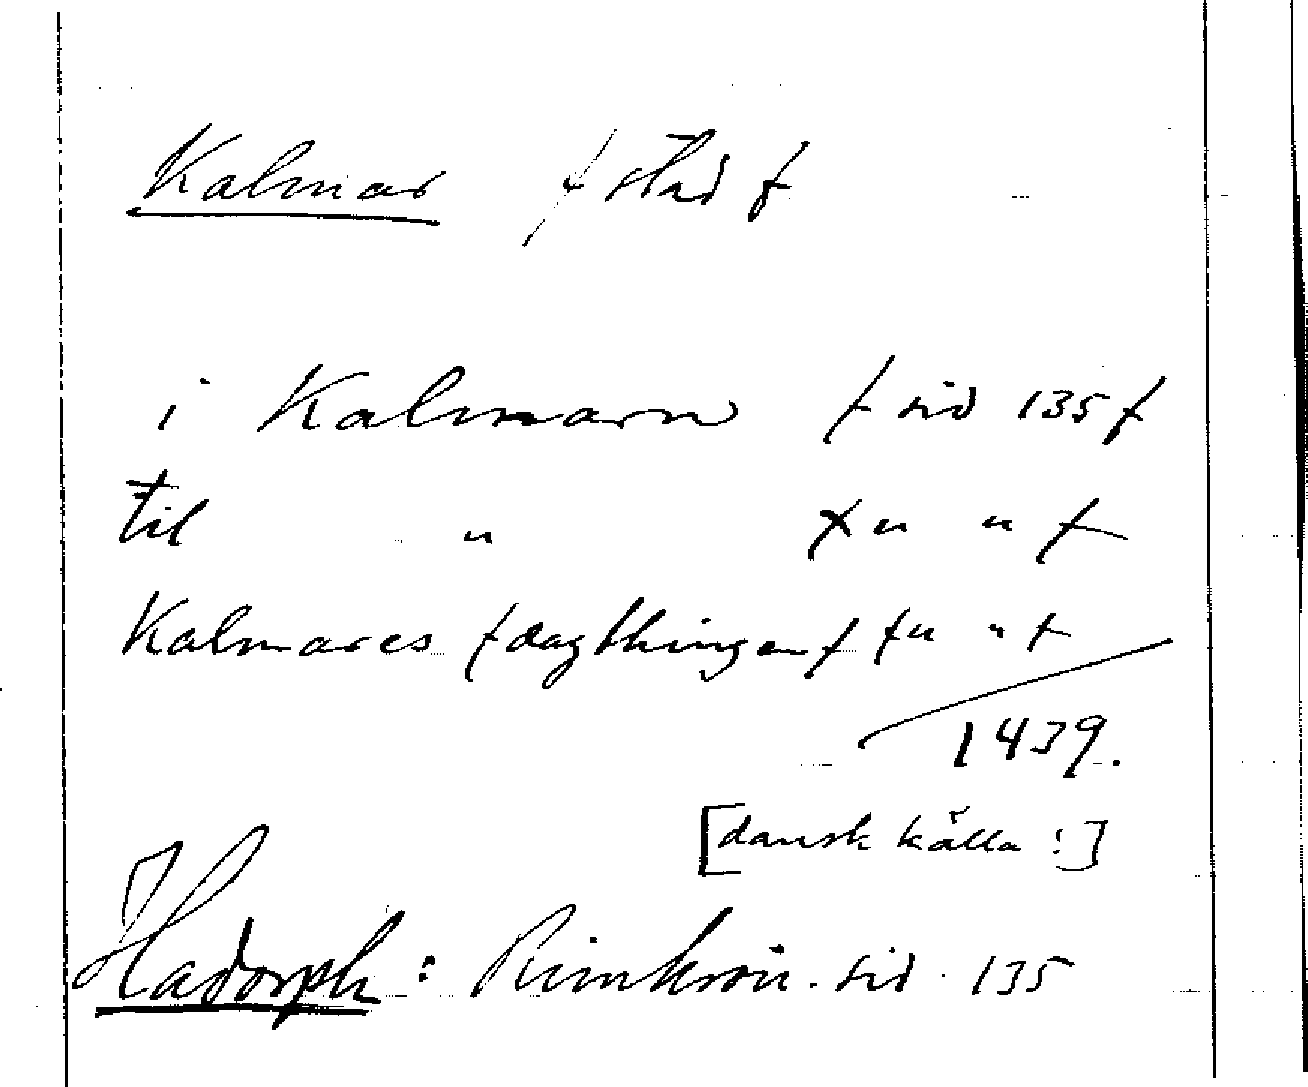 Kalmar /stad/
i Kalmarn /sid 135/
til " /" "/
Kalmares /dagthingen/ /" "/
1439.
[dansk källa!]
Hadorph: Rimkrön. sid. 135